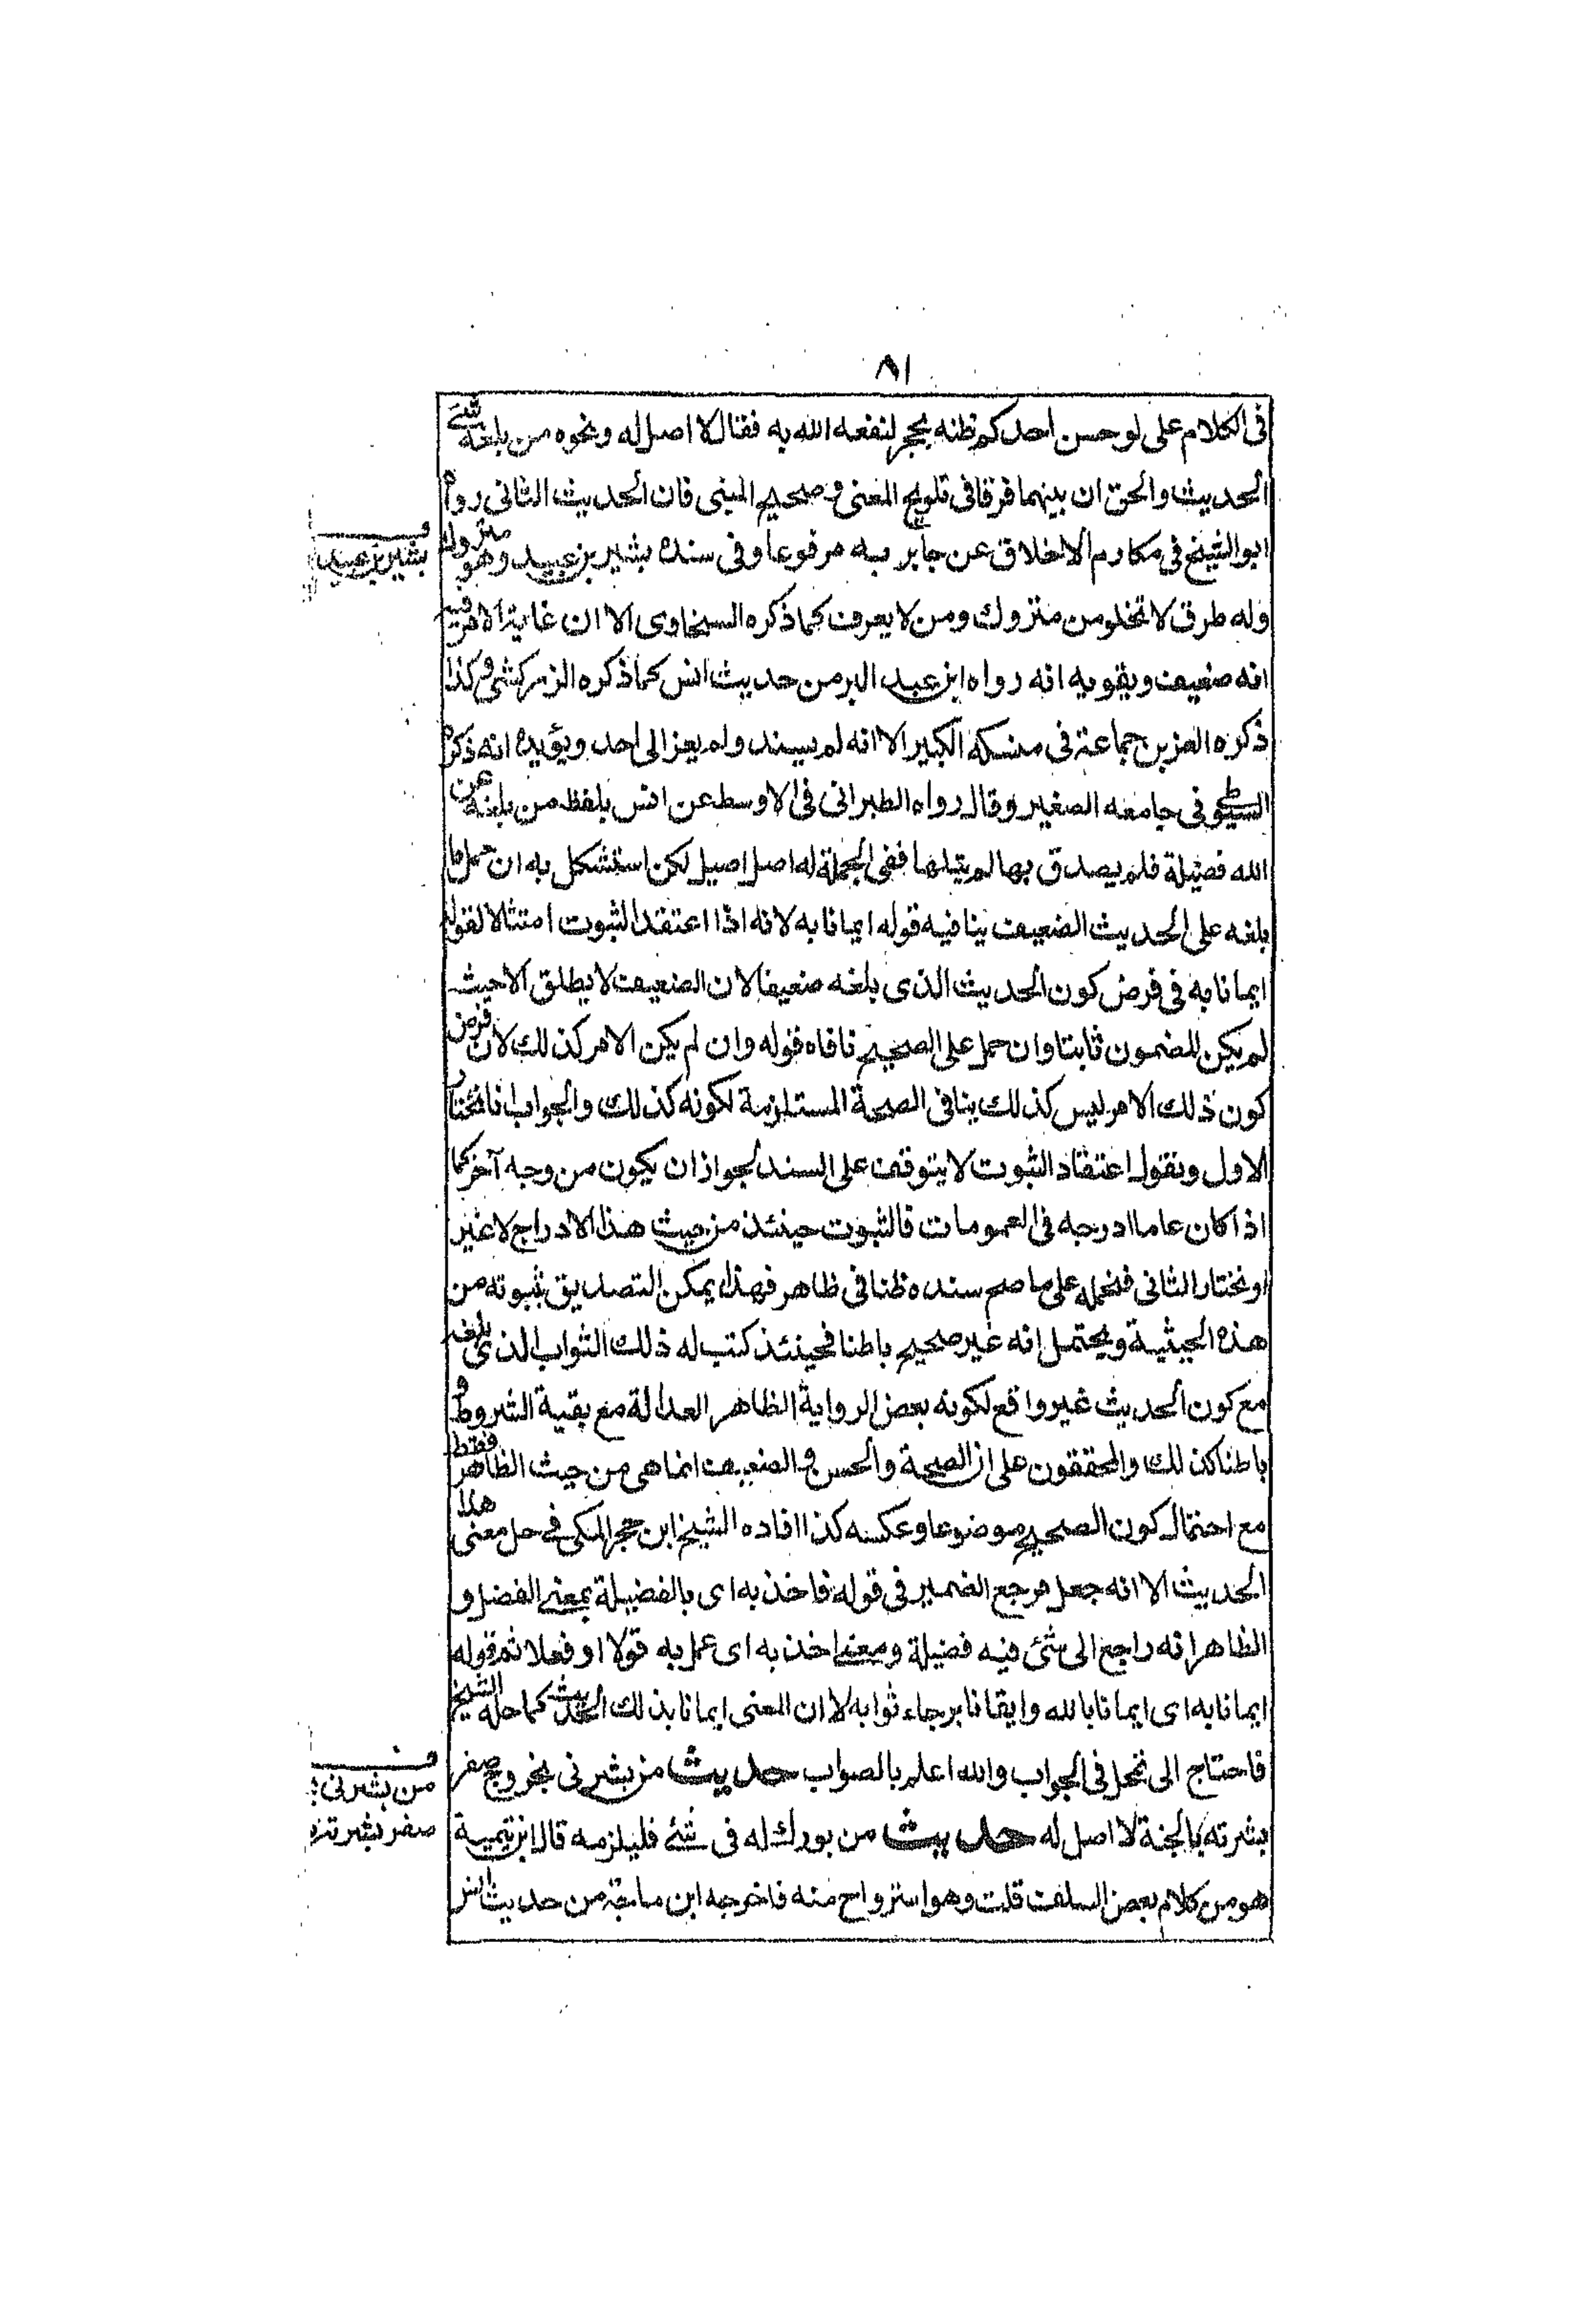 ٨١
في الكلام على لو حسن احدكم ظنه بحجر لنفعه الله به فقال لا اصل له ونحوه من بلغه شئ
الحديث والحق ان بينهما فرقا في تلويح المعنى وصحيح المبنى فان الحديث الثاني رواه
ابو الشيخ في مكارم الاخلاق عن جابر به مرفوعا وفي سنده بشير بن عبيد وهو متروك
وله طرق لا تخلو من متروك ومن لا يعرف كما ذكره السخاوى الا ان غاية الامر فيه
انه ضعيف ويقويه انه رواه ابن عبد البر من حديث انس كما ذكره الزركشى وكذا
ذكره العز بن جماعة في منسكه الكبير الا انه لم يسند ولم يعز الى احد ويؤيده انه ذكره
السيوطى في جامعه الصغير وقال رواه الطبرانى في الاوسط عن انس بلفظ من بلغه عن
الله فضيلة فلم يصدق بها لم ينلها ففى الجملة له اصل اصيل لكن استشكل به ان حمل ما
بلغه على الحديث الضعيف ينافيه قوله ايمانا به لانه اذا اعتقد الثبوت امتثالا لقوله
ايمانا به في فرض كون الحديث الذى بلغه ضعيفا لان الضعيف لا يطلق الا حيث
لم يكن للمضمون ثابتا وان حمل على الصحيح نافاه قوله وان لم يكن الامر كذلك لان فرض
كون ذلك الامر ليس كذلك ينافى الصحة المستلزمة لكونه كذلك والجواب انا نختار
الاول ونقول اعتقاد الثبوت لا يتوقف على السند لجواز ان يكون من وجه آخر كما
اذا كان عاما ادرجه في العمومات فالثبوت حينئذ من حيث هذا الادراج لا غير
او نختار الثانى فنحمله على ما صح سنده ظنا في ظاهر فهذا يمكن التصديق بثبوته من
هذه الحيثية ويحتمل انه غير صحيح باطنا فحينئذ كتب له ذلك الثواب الذى بلغه
مع كون الحديث غير واقع لكونه بعض الرواية الظاهر العدالة مع بقية الشروط و
باطنا كذلك والمحققون على ان الصحة والحسن والضعيف انما هى من حيث الظاهر فقط
مع احتمال كون الصحيح موضوعا وعكسه كذا افاده الشيخ ابن حجر المكى في حل معنى هذا
الحديث الا انه جعل مرجع الضمير في قوله فاخذ به اى بالفضيلة بمعنى الفضل و
الظاهر انه راجع الى شئ فيه فضيلة ومعنى اخذ به اى عمل به قولا او فعلا ثم قوله
ايمانا به اى ايمانا بالله وايقانا برجاء ثوابه لا ان المعنى ايمانا بذلك الحديث كما حله الشيخ
فاحتاج الى تمحل في الجواب والله اعلم بالصواب حديث من بشرنى بخروج صفر
بشرته بالجنة لا اصل له حديث من بورك له في شئ فليلزمه قال ابن تيمية
هو من كلام بعض السلف قلت وهو استرواح منه فاخرجه ابن ماجة من حديث انس
ف
بشير بن عبيد
ف
من بشرنى
صفر بشرته